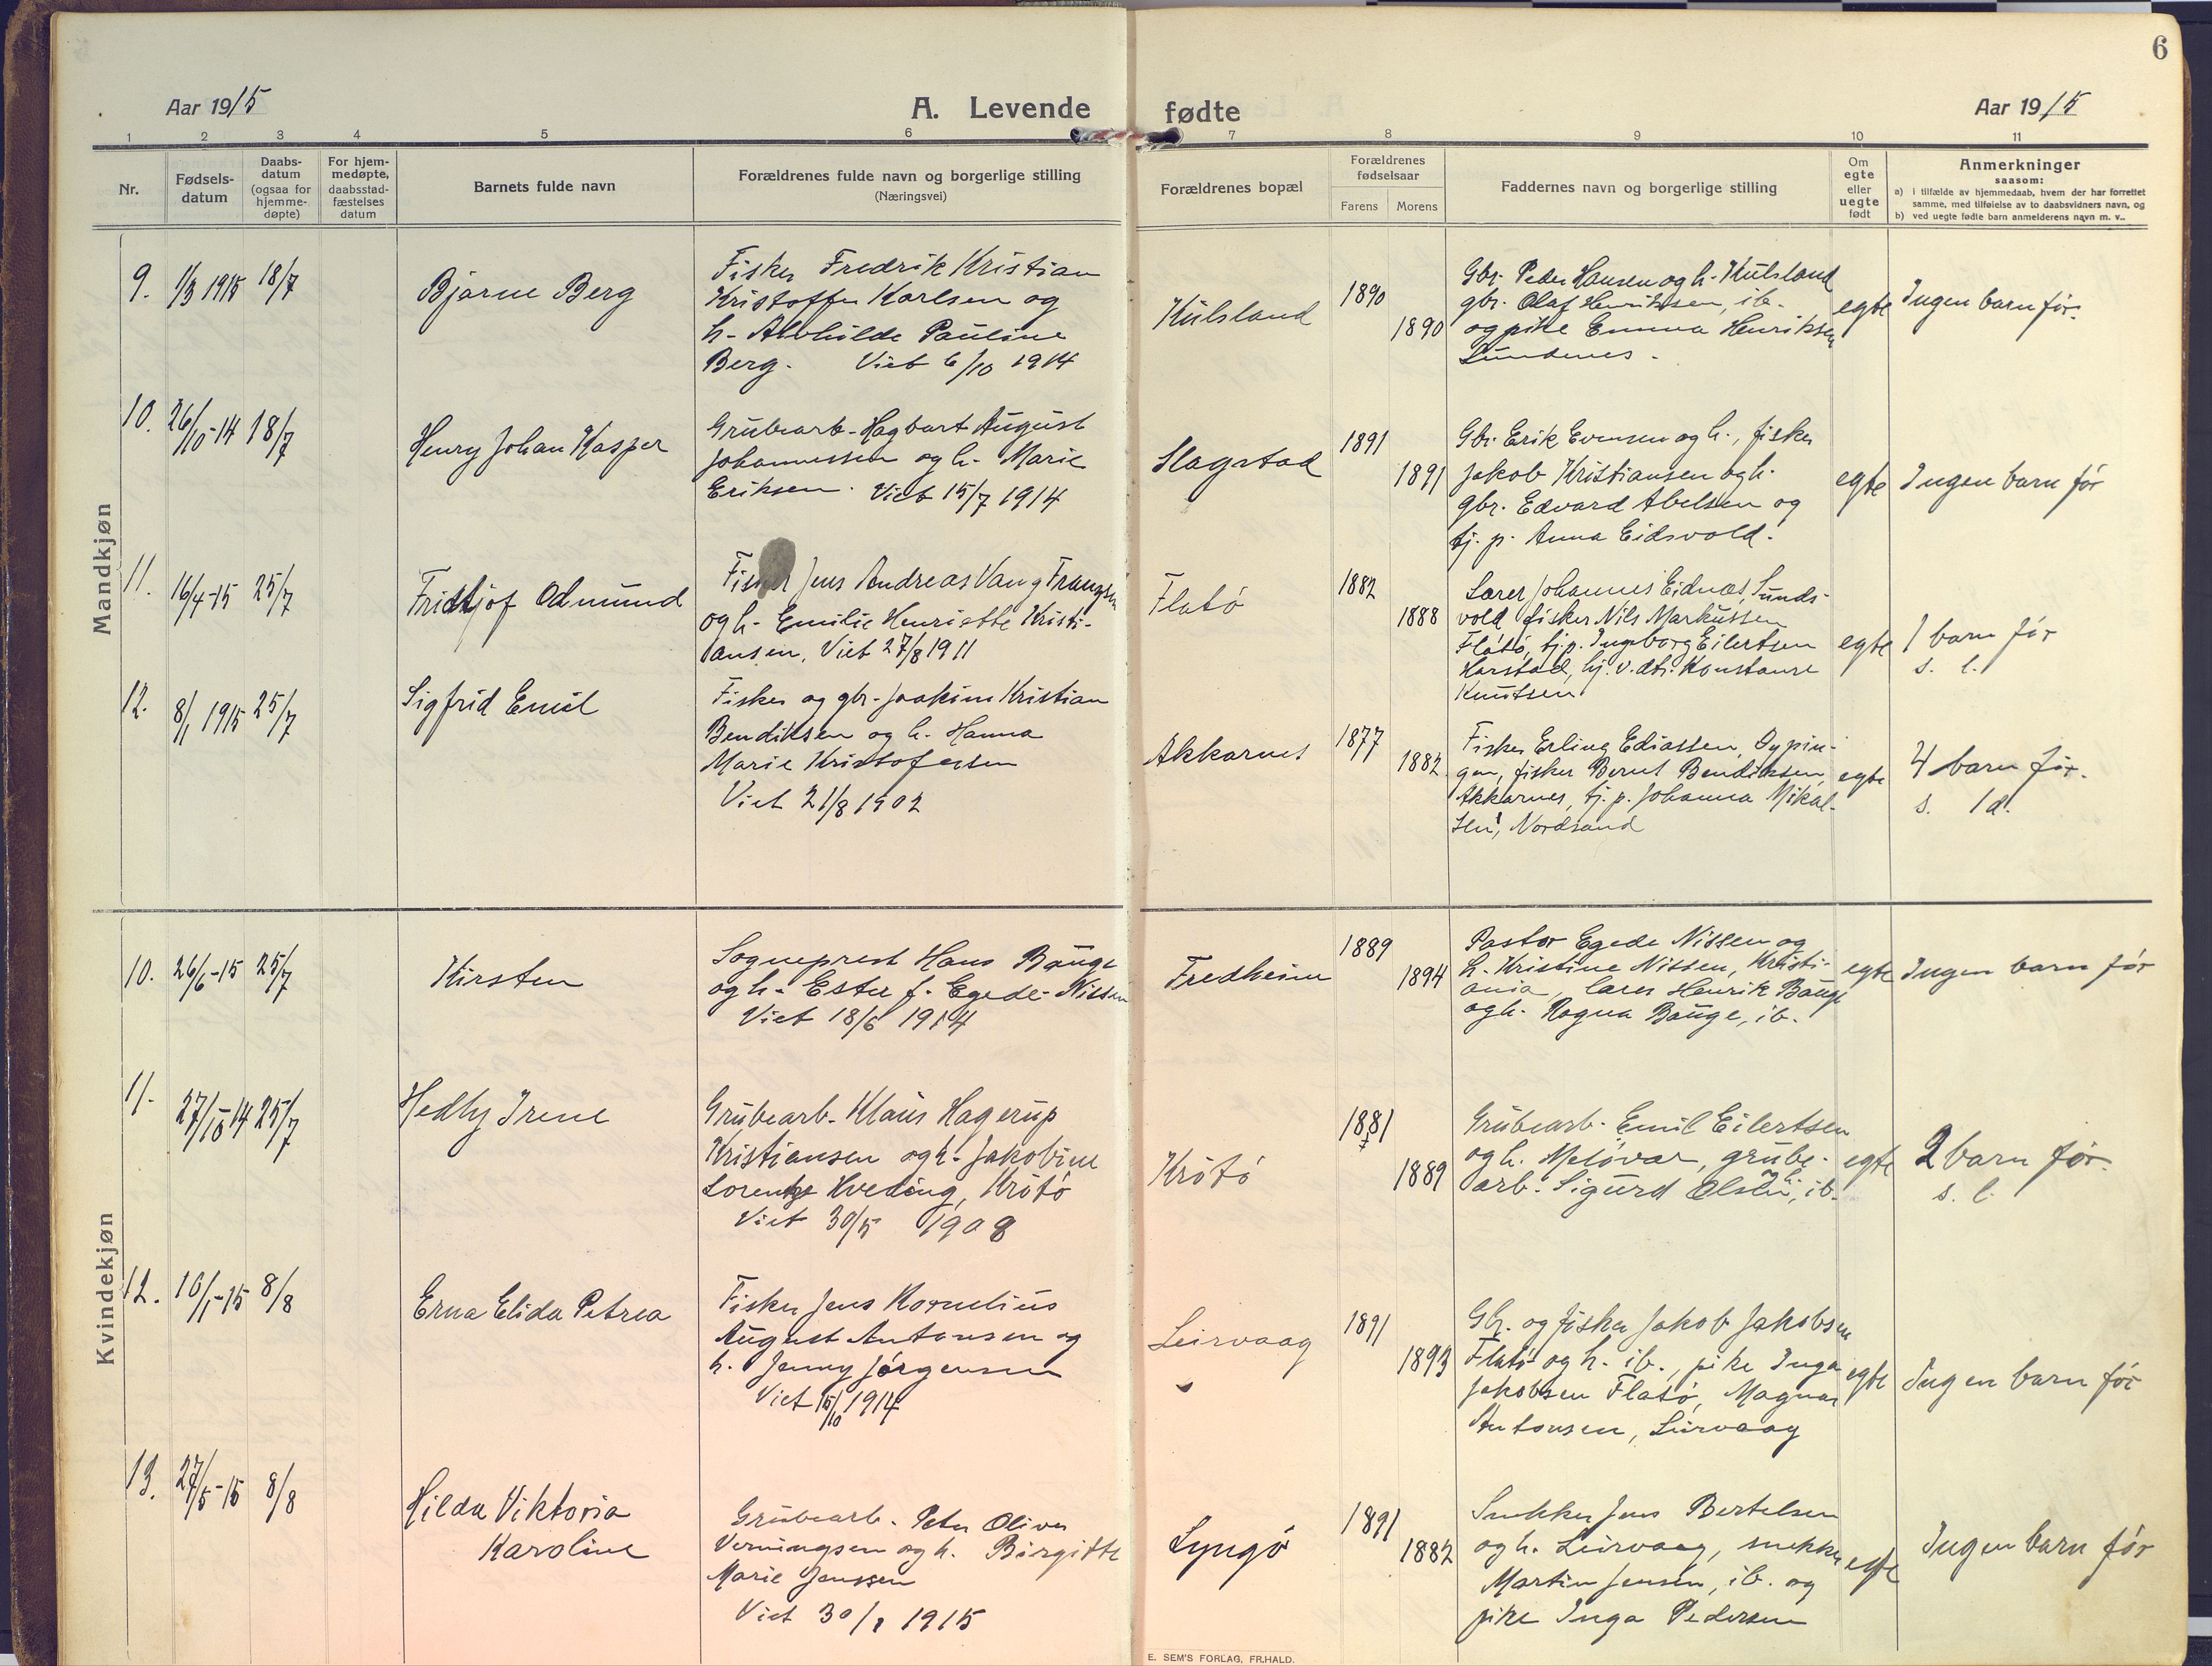 6
Aar 1915
A. Levende fødte
Aar 1915
1 2 3 4 5 6 7 8 9 10 11
Nr.
Fødsels-
datum
Daabs-
datum
(ogsaa for
hjemme-
døpte)
For hjem-
medøpte,
daabsstad-
fæstelses
datum
Barnets fulde navn
Forældrenes fulde navn og borgerlige stilling
(Næringsvei)
Forældrenes bopæl
Forældrenes
fødselsaar
Farens Morens
Faddernes navn og borgerlige stilling
Om
egte
eller
uegte
født
Anmerkninger
saasom:
a) i tilfælde av hjemmedaab, hvem der har forrettet
samme, med tilføielse av to daabsvidners navn, og
b) ved uegte fødte barn anmelderens navn m. v..
Mandkjøn
9. 1/3 1915 18/7
Bjarne Berg
Fisker Fredrik Kristian
Kristoffer Karlsen og
h. Alvhilde Pauline
Berg. Viet 6/10 1914
Kulsland
1890
1890
Gbr. Peder Hansen og h. Kulsland
gbr. Olaf Henriksen, ib.
og pike Emma Henriksen
Lundenes.
egte
Ingen barn før.
10. 26/10-14 18/7
Henry Johan Kasper
Grubearb. Hagbart August
Johannessen og h. Marie
Eriksen. Viet 15/7 1914
Slagstad
1891
1891
Gbr. Erik Evensen og h., fisker
Jakob Kristiansen og h.
gbr. Edvard Abelsen og
tj. p. Anna Eidsvold.
egte
Ingen barn før
11. 16/4-15 25/7
Fridtjof Odmund
Fisker Jens Andreas Vang Frantzen
og h. Emilie Henriette Kristi-
ansen, Viet 27/8 1911
Flatö
1882
1888
Lærer Johannes Eidnæs, Sunds-
vold, fisker Nils Markussen
Flatö, tj.p. Ingeborg Eilertsen
Harstad, hj. v. dtr. Konstanse
Knutsen
egte
1 barn før
s. l.
12. 8/1 1915 25/7
Sigfrid Emil
Fisker og gbr. Joakim Kristian
Bendiksen og h. Hanna
Marie Kristofersen
Viet 21/8 1902
Akkarnes
1877
1882
Fisker Erling Ediassen, Gypin-
gen, fisker Bernt Bendiksen,
Akkarnes, tj. p. Johanna Mikal-
sen, Nordsand
egte
4 barn før.
s. 1 d.
Kvindekjøn
10. 26/6-15 25/7
Kirsten
Sogneprest Hans Bauge
og h. Ester f. Egede-Nissen
Viet 18/6 1914
Fredheim
1889
1894
Pastor Egede Nissen og
h. Kristine Nissen, Kristi-
ania, lærer Henrik Bauge
og h. Ragna Bauge, ib.
egte
Ingen barn før
11. 27/10-14 25/7
Hedly Irene
Grubearb. Klaus Hagerup
Kristiansen og h. Jakobine
Lorentze Kveding, Krøtø
Viet 30/5 1908
Krötö
1881
1889
Grubearb. Emil Eilertsen
og h. Meløvær, grube-
arb. Sigurd Olsen, ib.
egte
2 barn før.
s. l.
12. 10/1-15 8/8
Erna Elida Petrea
Fisker Jens Kornelius
August Antonsen og
h. Jenny Jørgensen
Viet 15/10 1914
Leirvaag
1891
1893
Gbr. og fisker Jakob Jakobsen
Flatö og h. ib., pike Inga
Jakobsen Flatö, Magnus
Antonsen, Leirvaag
egte
Ingen barn før
13. 27/5-15 8/8
Hilda Viktoria
Karoline
Grubearb. Peter Oliver
Verningsen og h. Birgitte
Marie Janssen
Viet 30/1 1915
Lyngö
1891
1882
Snekker Jens Bertelsen
og h. Leirvaag, snekker
Martin Jensen, ib. og
pike Inga Pedersen
egte
Ingen barn før
E. SEM'S FORLAG, FR.HALD.